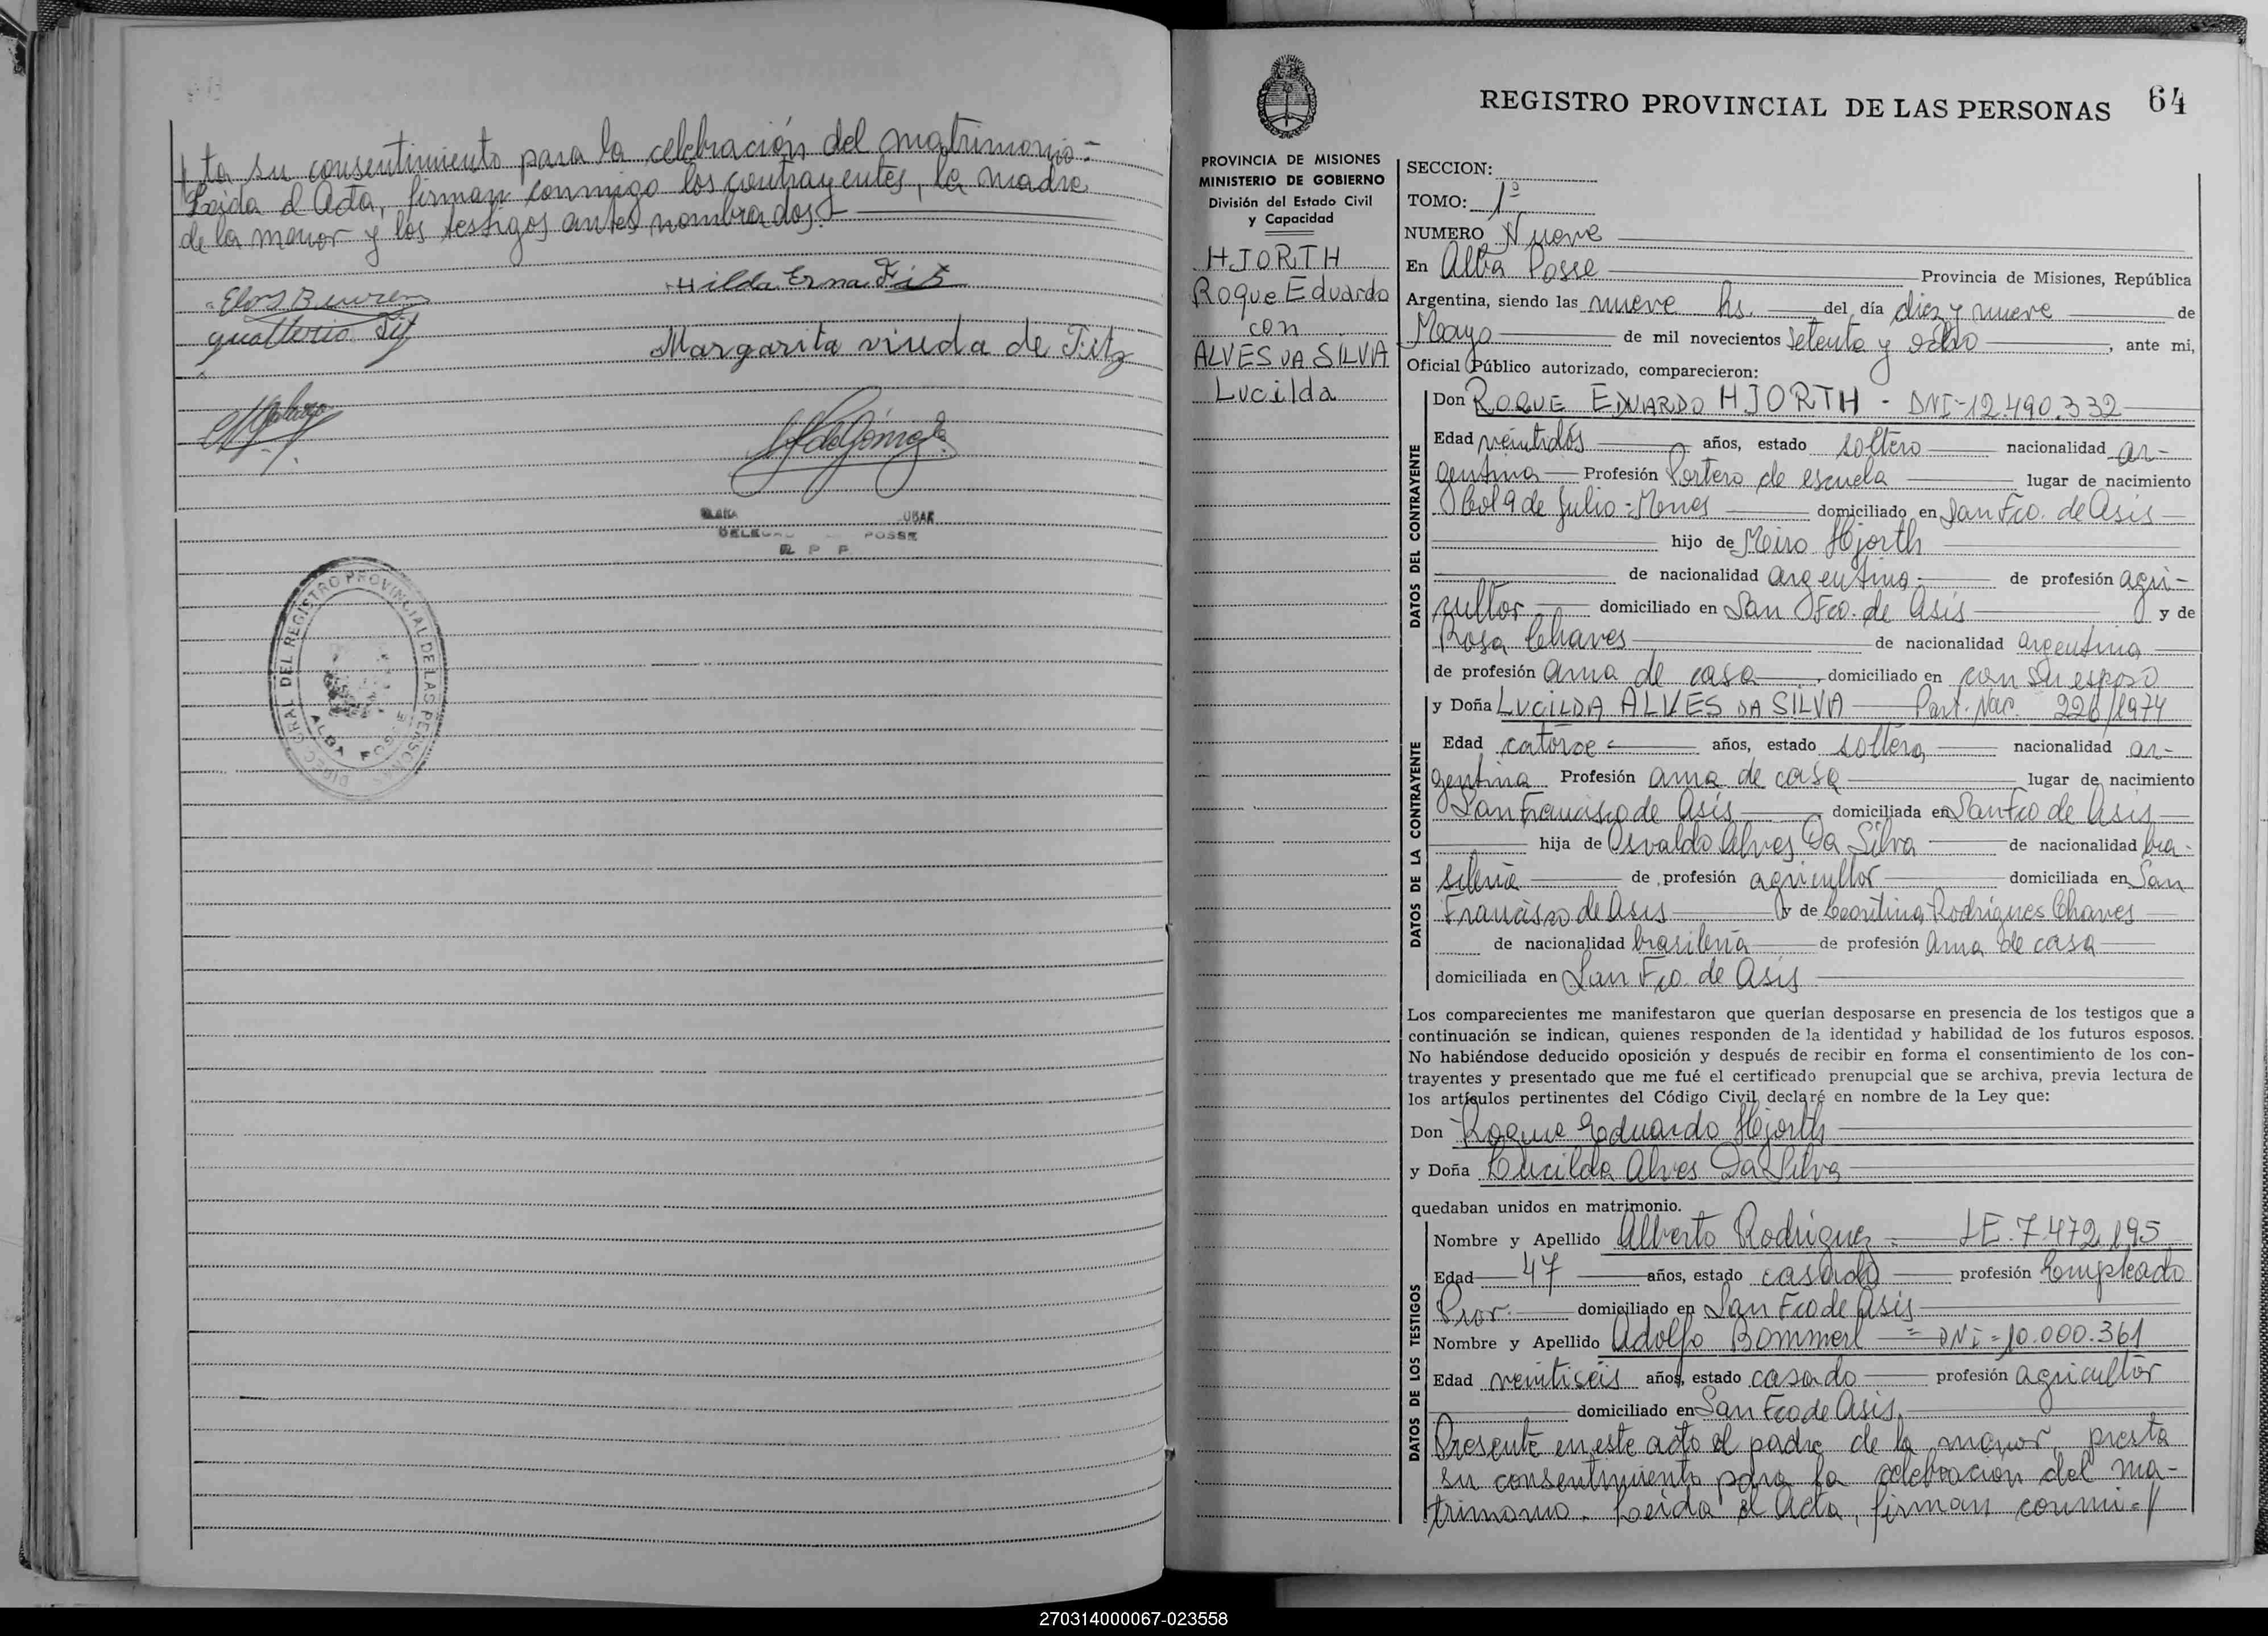 ta su consentimiento para la celebración del matrimonio.-
Leida el Acta, firman conmigo los contrayentes, la madre
de la menor y los testigos antes nombrados.-
Hilda Erna Fitz
Margarita viuda de Fitz
DELEG POSSE
R P P
DIREC. GRAL. DEL REGISTRO PROVINCIAL DE LAS PERSONAS
ALBA POSSE
REGISTRO PROVINCIAL DE LAS PERSONAS 64
PROVINCIA DE MISIONES
MINISTERIO DE GOBIERNO
División del Estado Civil
y Capacidad
HJORTH
Roque Eduardo
con
ALVES DA SILVA
Lucilda
SECCION:
TOMO: 1º
NUMERO Nueve
En Alba Posse Provincia de Misiones, República
Argentina, siendo las nueve hs. del día diez y nueve de
Mayo de mil novecientos setenta y ocho, ante mi,
Oficial Público autorizado, comparecieron:
DATOS DEL CONTRAYENTE
Don ROQUE EDUARDO HJORTH - DNI-12.490.332
Edad veintidós años, estado soltero nacionalidad ar-
gentina Profesión Portero de escuela lugar de nacimiento
Col 9 de Julio - Mnes domiciliado en San Fco. de Asis
hijo de Miro Hjorth
de nacionalidad argentina de profesión agri-
cultor domiciliado en San Fco. de Asís y de
Rosa Chaves de nacionalidad argentina
de profesión ama de casa, domiciliado en con su esposo
DATOS DE LA CONTRAYENTE
y Doña LUCILDA ALVES DA SILVA Part. Nac. 226/1974
Edad catorce años, estado soltera nacionalidad ar-
gentina Profesión ama de casa lugar de nacimiento
San Francisco de Asís domiciliada en San Fco de Asis
hija de Osvaldo Alves Da Silva de nacionalidad bra-
sileña de profesión agricultor domiciliada en San
Francisco de Asis y de Rodrigues Chaves
de nacionalidad brasileña de profesión ama de casa
domiciliada en San Fco. de Asis
Los comparecientes me manifestaron que querían desposarse en presencia de los testigos que a
continuación se indican, quienes responden de la identidad y habilidad de los futuros esposos.
No habiéndose deducido oposición y después de recibir en forma el consentimiento de los con-
trayentes y presentado que me fué el certificado prenupcial que se archiva, previa lectura de
los artículos pertinentes del Código Civil declaré en nombre de la Ley que:
Don Roque Eduardo Hjorth
y Doña Lucilda Alves Da Silva
quedaban unidos en matrimonio.
DATOS DE LOS TESTIGOS
Nombre y Apellido Alberto Rodriguez - LE. 7.472.195
Edad 47 años, estado casado profesión Empleado
Prov. domiciliado en San Fco de Asis
Nombre y Apellido Adolfo Bommerl = DNI = 10.000.361
Edad veintiseis años, estado casado profesión agricultor
domiciliado en San Fco de Asis
Presente en este acto el padre de la menor, presta
su consentimiento para la celebración del ma-
trimonio. Leida el Acta, firman conmi=//
270314000067-023558